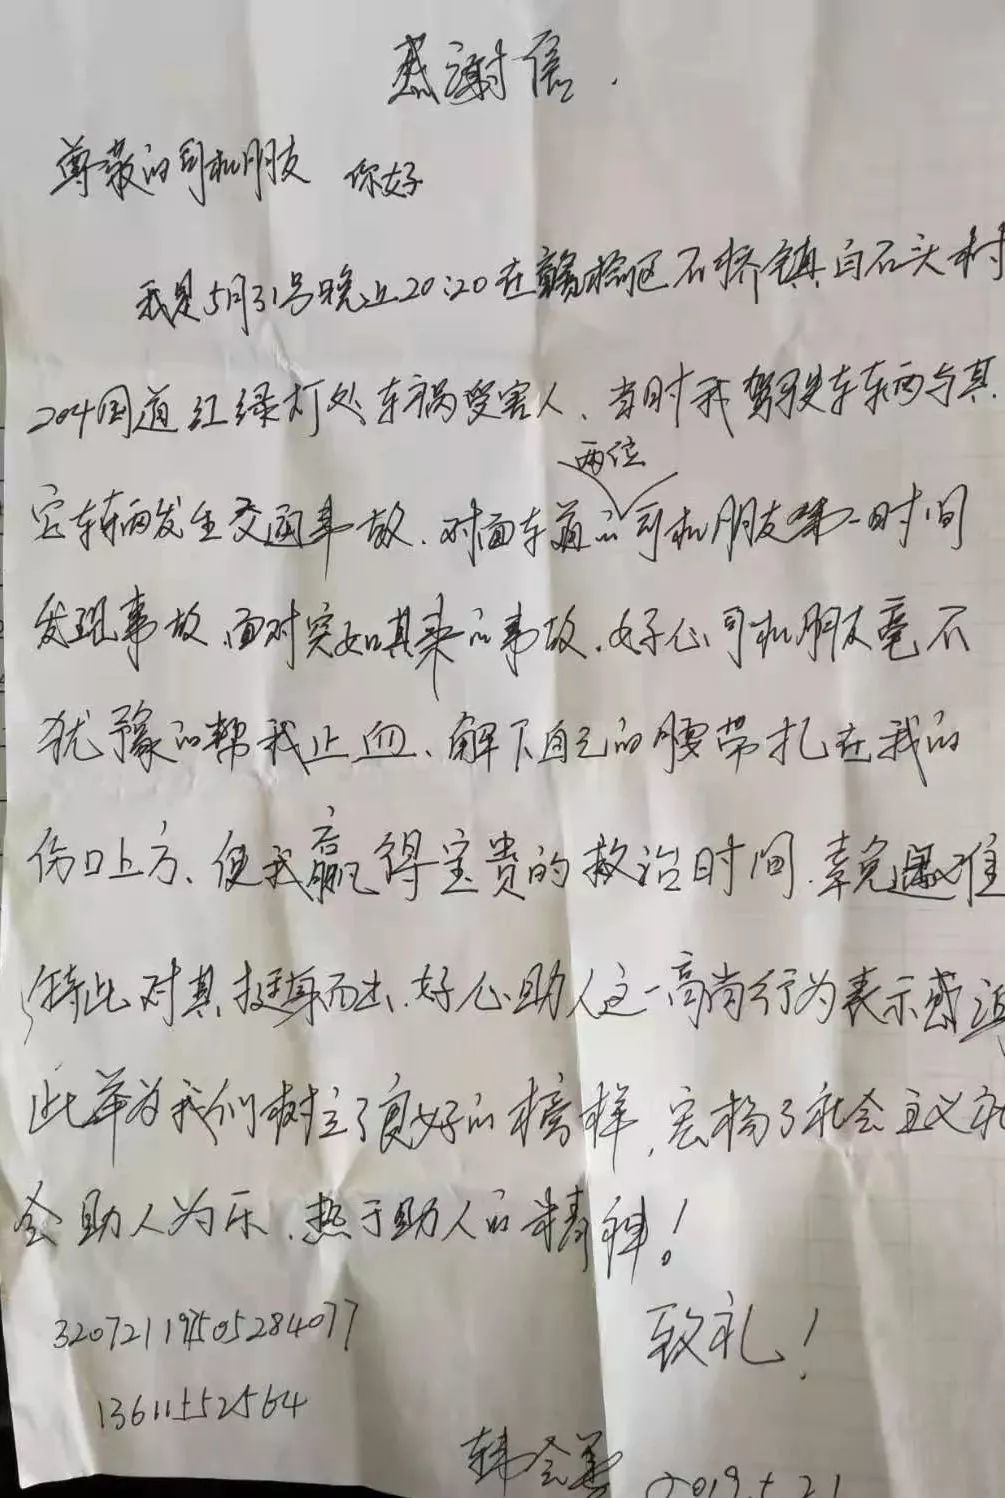 感谢信.
尊敬的司机朋友 你好
我是5月31号晚上20:20在赣榆区石桥镇白石头村
204国道红绿灯处车祸受害人、当时我驾驶车辆与其
两位
它车辆发生交通事故、对面车道的司机朋友第一时间
发现事故、面对突如其来的事故、好心司机朋友毫不
犹豫的帮我止血、解下自己的腰带扎在我的
伤口上方、使我赢得宝贵的救治时间、幸免遇难
特此对其挺身而出、好心助人这一高尚行为表示感谢
此举为我们树立了良好的榜样,宏扬了社会主义社
会助人为乐、热于助人的精神!
致礼!
13611552564
韩会
2019.